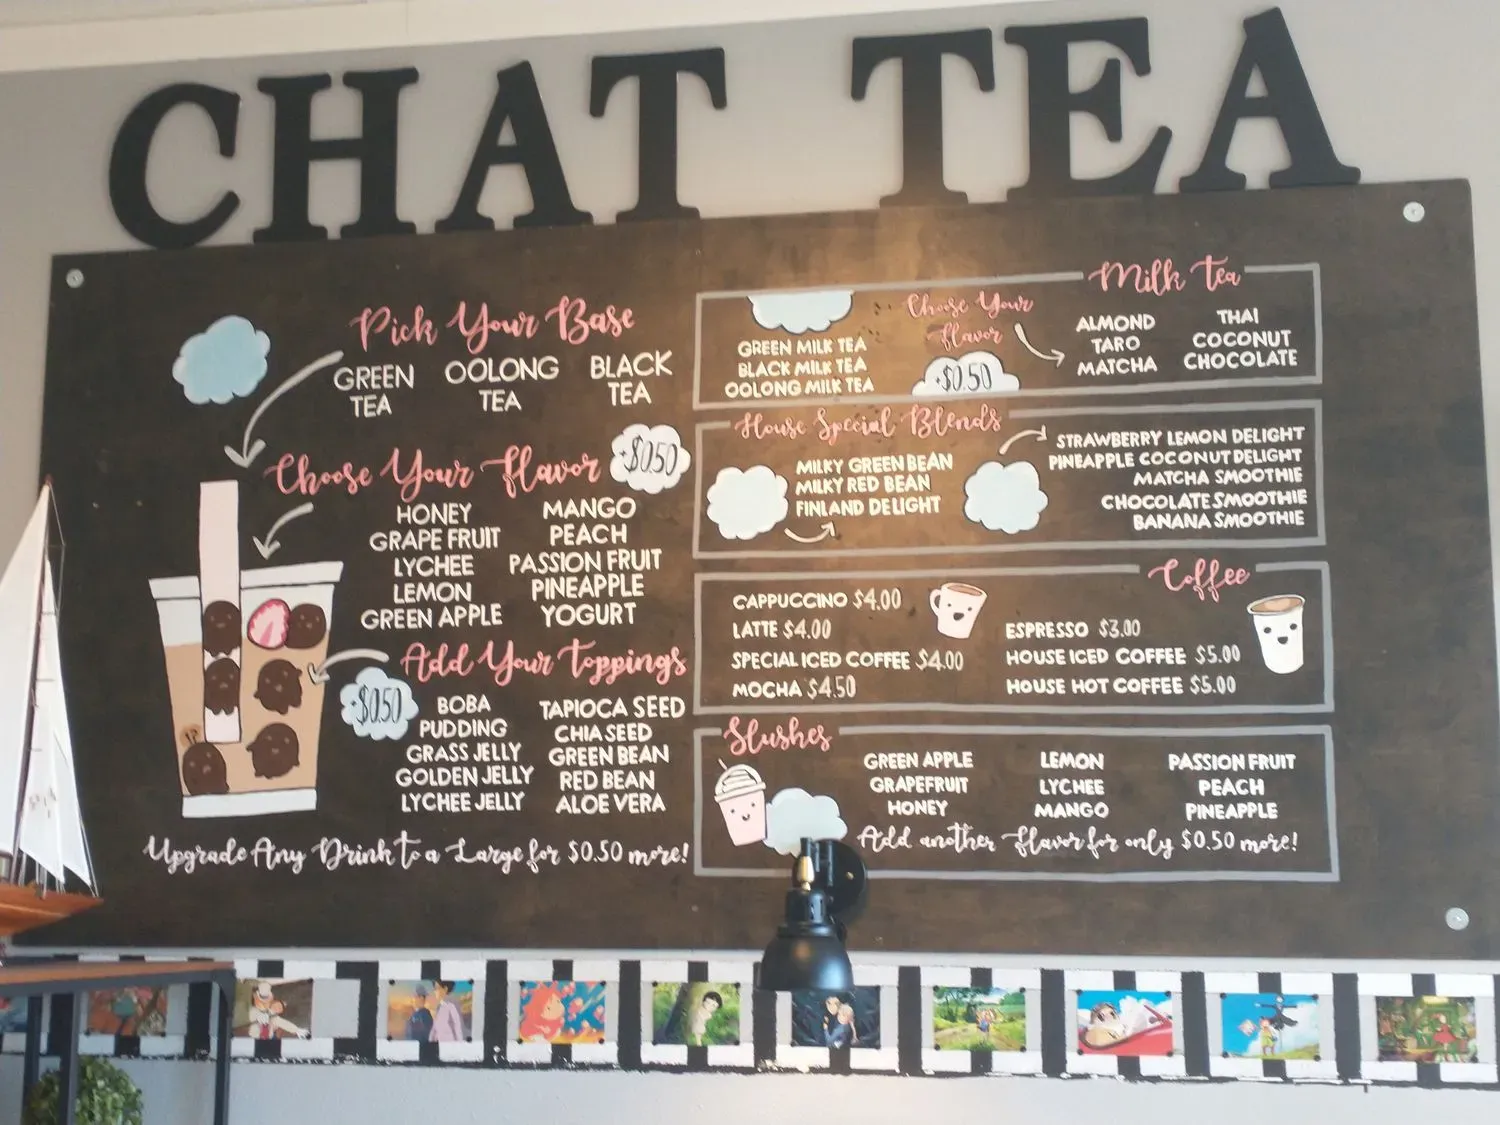 CHAT TEA
Pick Your Base
GREEN TEA
OOLONG TEA
BLACK TEA
Choose Your Flavor
+$0.50
HONEY
GRAPE FRUIT
LYCHEE
LEMON
GREEN APPLE
MANGO
PEACH
PASSION FRUIT
PINEAPPLE
YOGURT
Add Your Toppings
+$0.50
BOBA
PUDDING
GRASS JELLY
GOLDEN JELLY
LYCHEE JELLY
TAPIOCA SEED
CHIA SEED
GREEN BEAN
RED BEAN
ALOE VERA
Upgrade Any Drink to a Large for $0.50 more!
Milk Tea
GREEN MILK TEA
BLACK MILK TEA
OOLONG MILK TEA
Choose Your
Flavor
+$0.50
ALMOND
TARO
MATCHA
THAI
COCONUT
CHOCOLATE
House Special Blends
MILKY GREEN BEAN
MILKY RED BEAN
FINLAND DELIGHT
STRAWBERRY LEMON DELIGHT
PINEAPPLE COCONUT DELIGHT
MATCHA SMOOTHIE
CHOCOLATE SMOOTHIE
BANANA SMOOTHIE
Coffee
CAPPUCCINO $4.00
LATTE $4.00
SPECIAL ICED COFFEE $4.00
MOCHA $4.50
ESPRESSO $3.00
HOUSE ICED COFFEE $5.00
HOUSE HOT COFFEE $5.00
Slushes
GREEN APPLE
GRAPEFRUIT
HONEY
LEMON
LYCHEE
MANGO
PASSION FRUIT
PEACH
PINEAPPLE
Add another flavor for only $0.50 more!